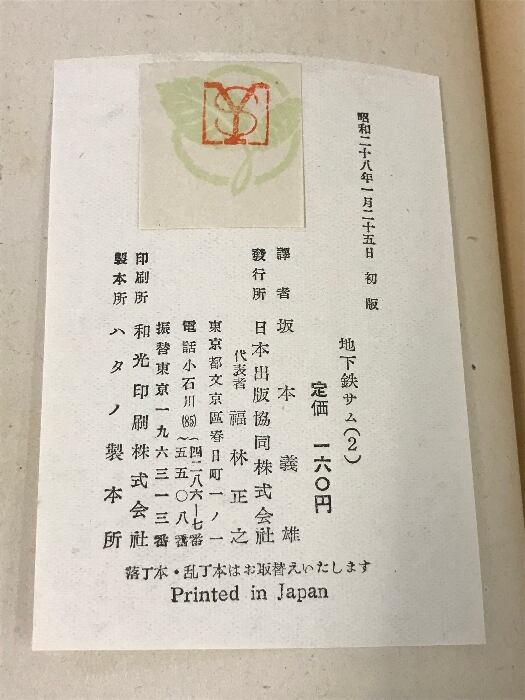 昭和二十八年一月二十五日 初版
地下鉄サム(2)
定価 一六〇円
譯者 坂本義雄
發行所 日本出版協同株式会社
代表者 福林正之
東京都文京區春日町一ノ一
電話小石川(85)~四二八六―七番
~五五〇八番
振替東京一九六三一三番
印刷所 和光印刷株式会社
製本所 ハタノ製本所
落丁本・乱丁本はお取替えいたします
Printed in Japan